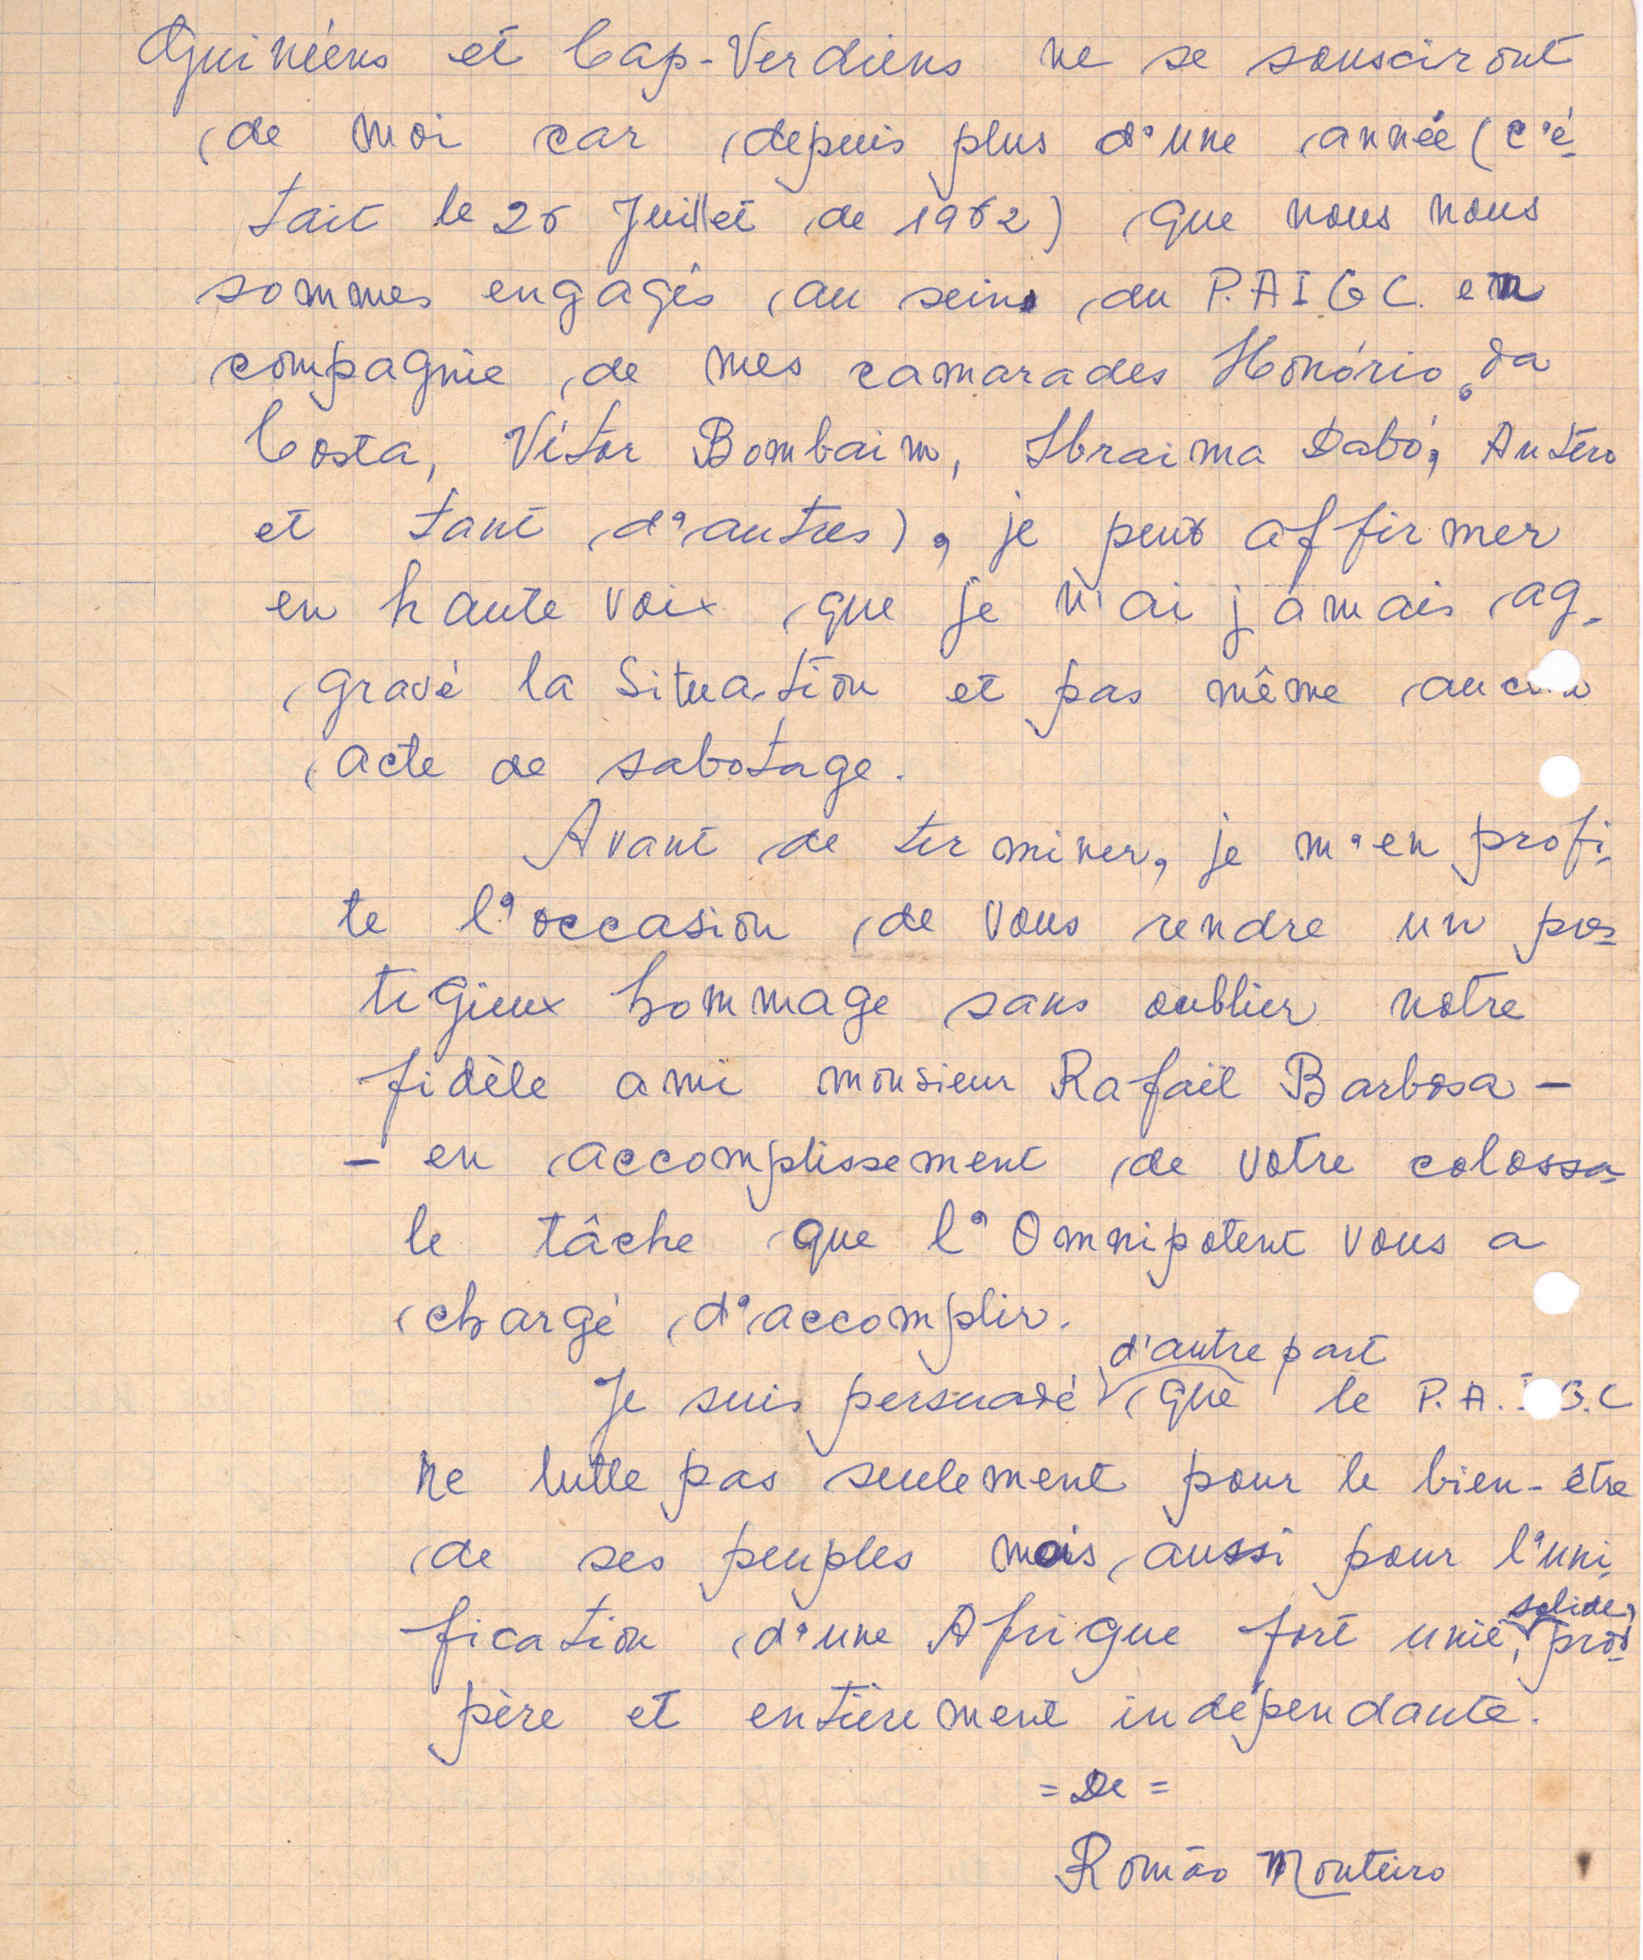 Guinéens et Cap-Verdiens ne se sousciront
de moi car depuis plus d'une année (c'é-
tait le 26 Juillet de 1962) que nous nous
sommes engagés au sein du P.AIGC. en
compagnie de mes camarades Honório da
Costa, Vítor Bombaim, Ibraima Dabó, Antero
et tant d'autres), je peux affirmer
en haute voix que je n'ai jamais ag-
gravé la Situation et pas même aucun
acte de sabotage.
Avant de terminer, je m'en profi-
te l'occasion de vous rendre un pres-
tigieux hommage sans oublier notre
fidèle ami monsieur Rafaël Barbosa -
- en accomplissement de votre colossa-
le tâche que l'Omnipotent vous a
chargé d'accomplir.
d'autre part
Je suis persuadé que le P.A.I.G.C
ne lutte pas seulement pour le bien-être
de ses peuples mais aussi pour l'uni-
solide,
fication d'une Afrique fort unie, pros-
père et entièrement indépendante.
= De =
Romão Monteiro